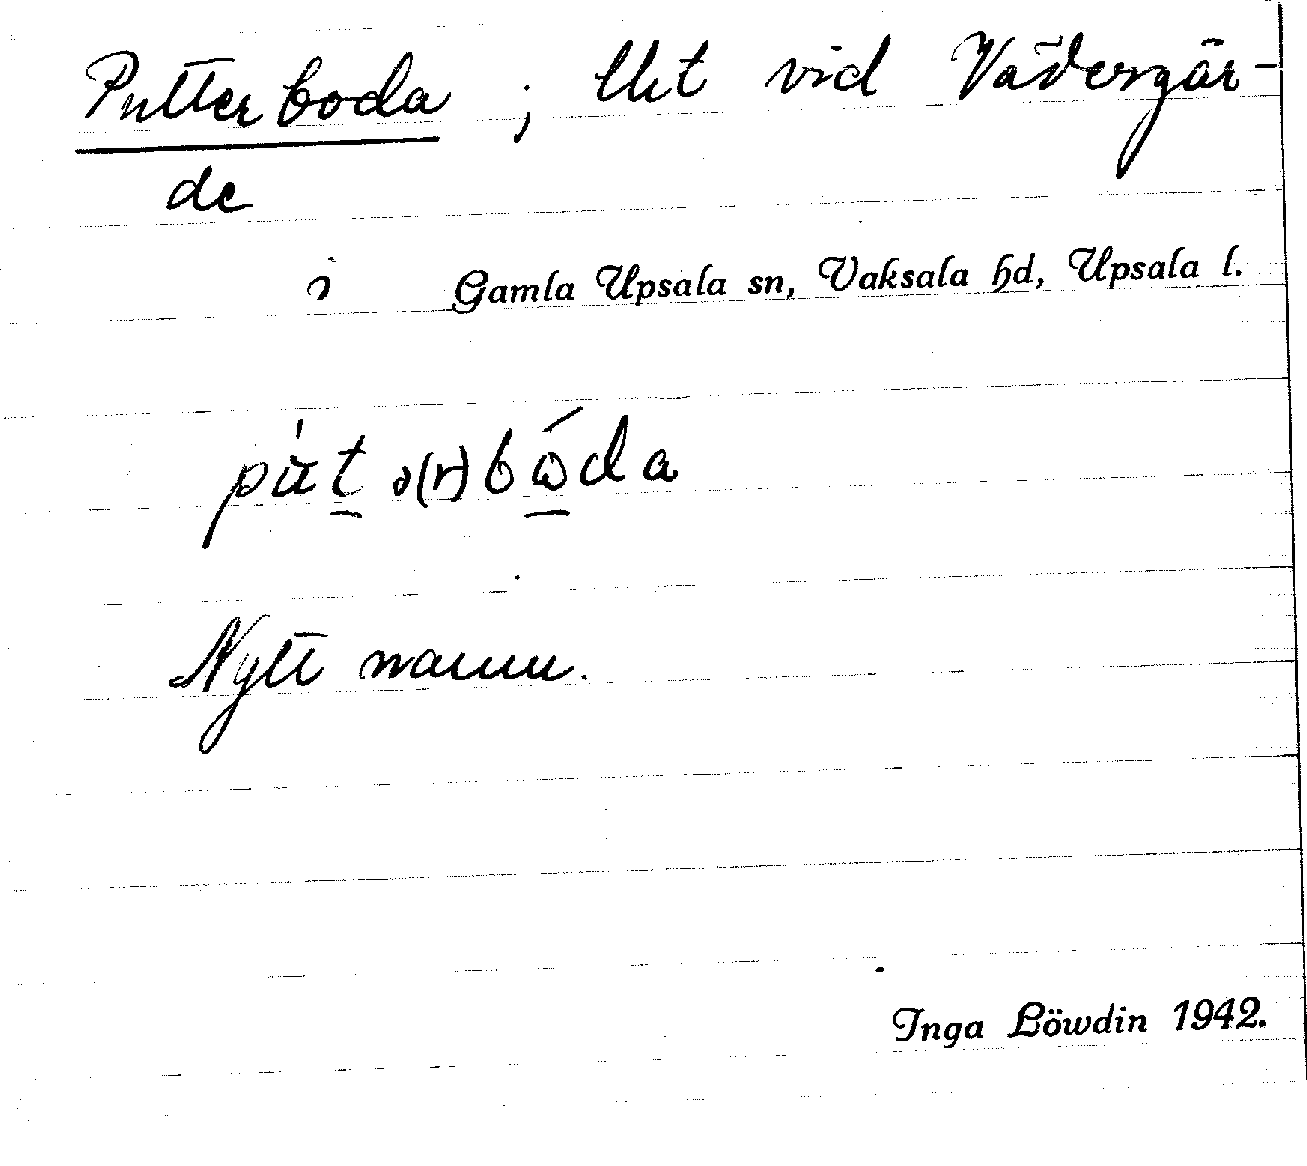 Putterboda ; lht vid Vädergär-
de
i Gamla Upsala sn, Vaksala hd, Upsala l.
pùt ə(r)bódа
Nytt namn.
Inga Löwdin 1942.